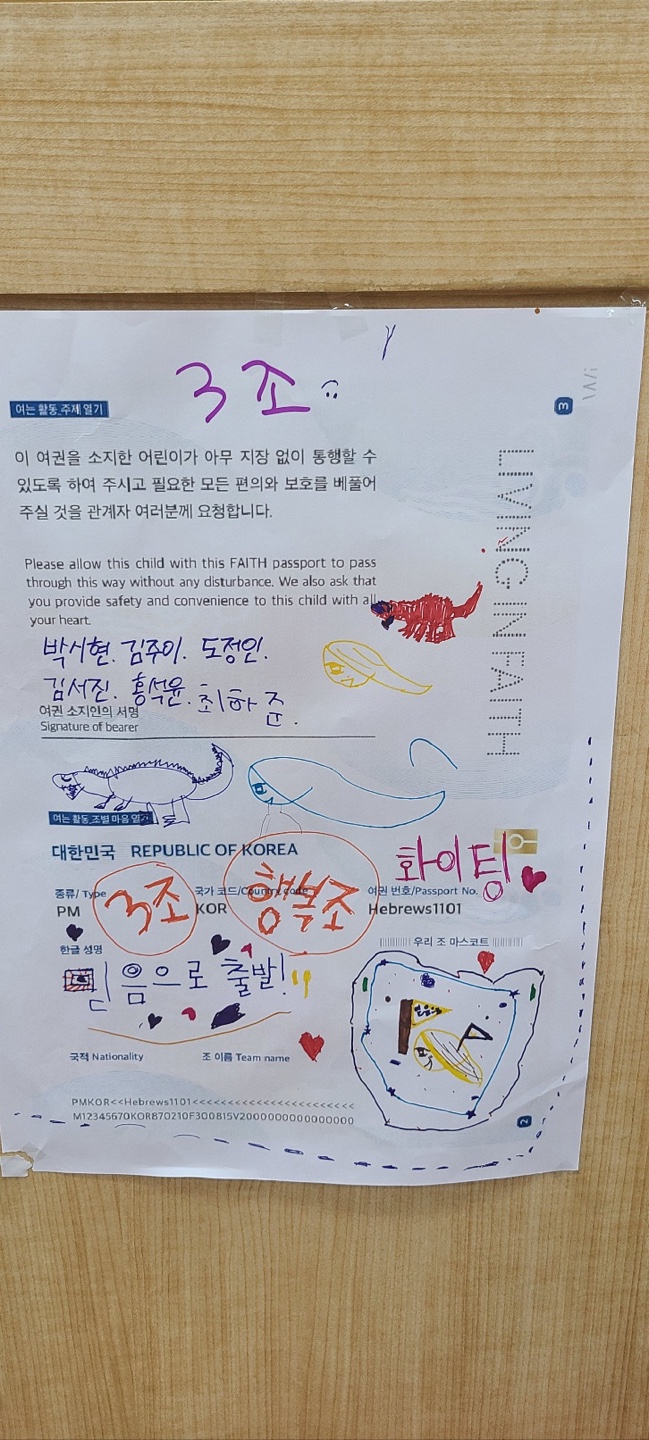 3조
여는 활동_주제 열기
3
이 여권을 소지한 어린이가 아무 지장 없이 통행할 수
있도록 하여 주시고 필요한 모든 편의와 보호를 베풀어
주실 것을 관계자 여러분께 요청합니다.
LIVING IN FAITH
Please allow this child with this FAITH passport to pass
through this way without any disturbance. We also ask that
you provide safety and convenience to this child with all
your heart.
박시현. 김주이. 도정인.
김서진. 홍석윤. 최하준.
여권 소지인의 서명
Signature of bearer
여는 활동_조별 마음 열기
대한민국 REPUBLIC OF KOREA
화이팅
종류/ Type
국가 코드/Country code
여권 번호/Passport No.
PM
3조
KOR
행복조
Hebrews1101
한글 성명
우리 조 마스코트
믿음으로 출발!
믿음
국적 Nationality
조 이름 Team name
PMKOR<<Hebrews1101<<<<<<<<<<<<<<<<<<<<<<<<<<
M12345670KOR870210F300815V2000000000000000
2